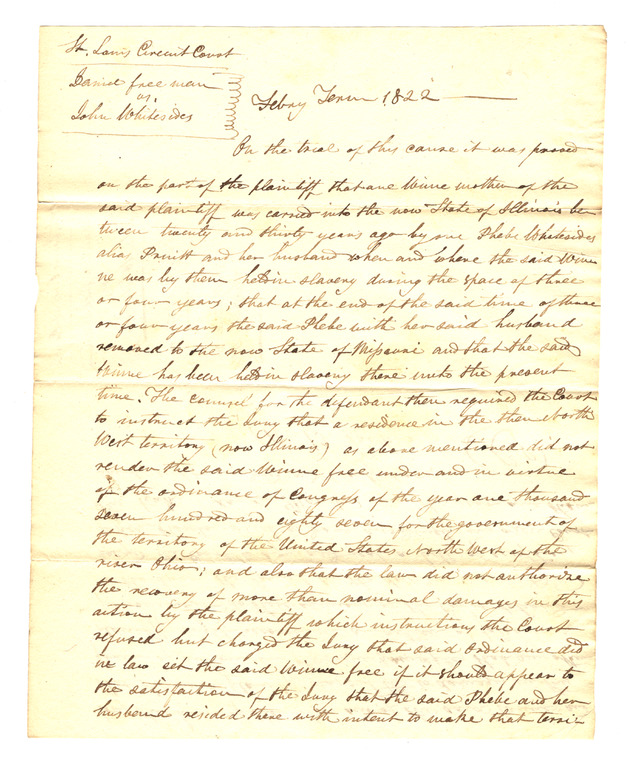 St. Louis Circuit Court
Daniel free man
vs.
John Whitesides
Febry Term 1822
On the trial of this cause it was proved
on the part of the plaintiff that one Winne mother of the
said plaintiff was carried into the now State of Illinois be
tween twenty and thirty years ago by one Phebe Whitesides
alias Pruitt and her husband when and where the said Winne
ne was by them held in slavery during the space of three
or four years; that at the end of the said time of three
or four years the said Phebe with her said husband
removed to the now State of Missouri and that the said
Winne has been held in slavery there unto the present
time. The counsel for the defendant then required the Court
to instruct the Jury that a residence in the then North
West territory (now Illinois) as above mentioned did not
render the said Winne free under and in virtue
of the ordinance of Congress of the year one thousand
seven hundred and eighty seven for the government of
the territory of the United States North West of the
river Ohio; and also that the law did not authorize
the recovery of more than nominal damages in this
action by the plaintiff which instructions the Court
refused but charged the Jury that said ordinance did
in law set the said Winne free if it should appear to
the satisfaction of the Jury that the said Phebe and her
husband resided there with intent to make that terri-